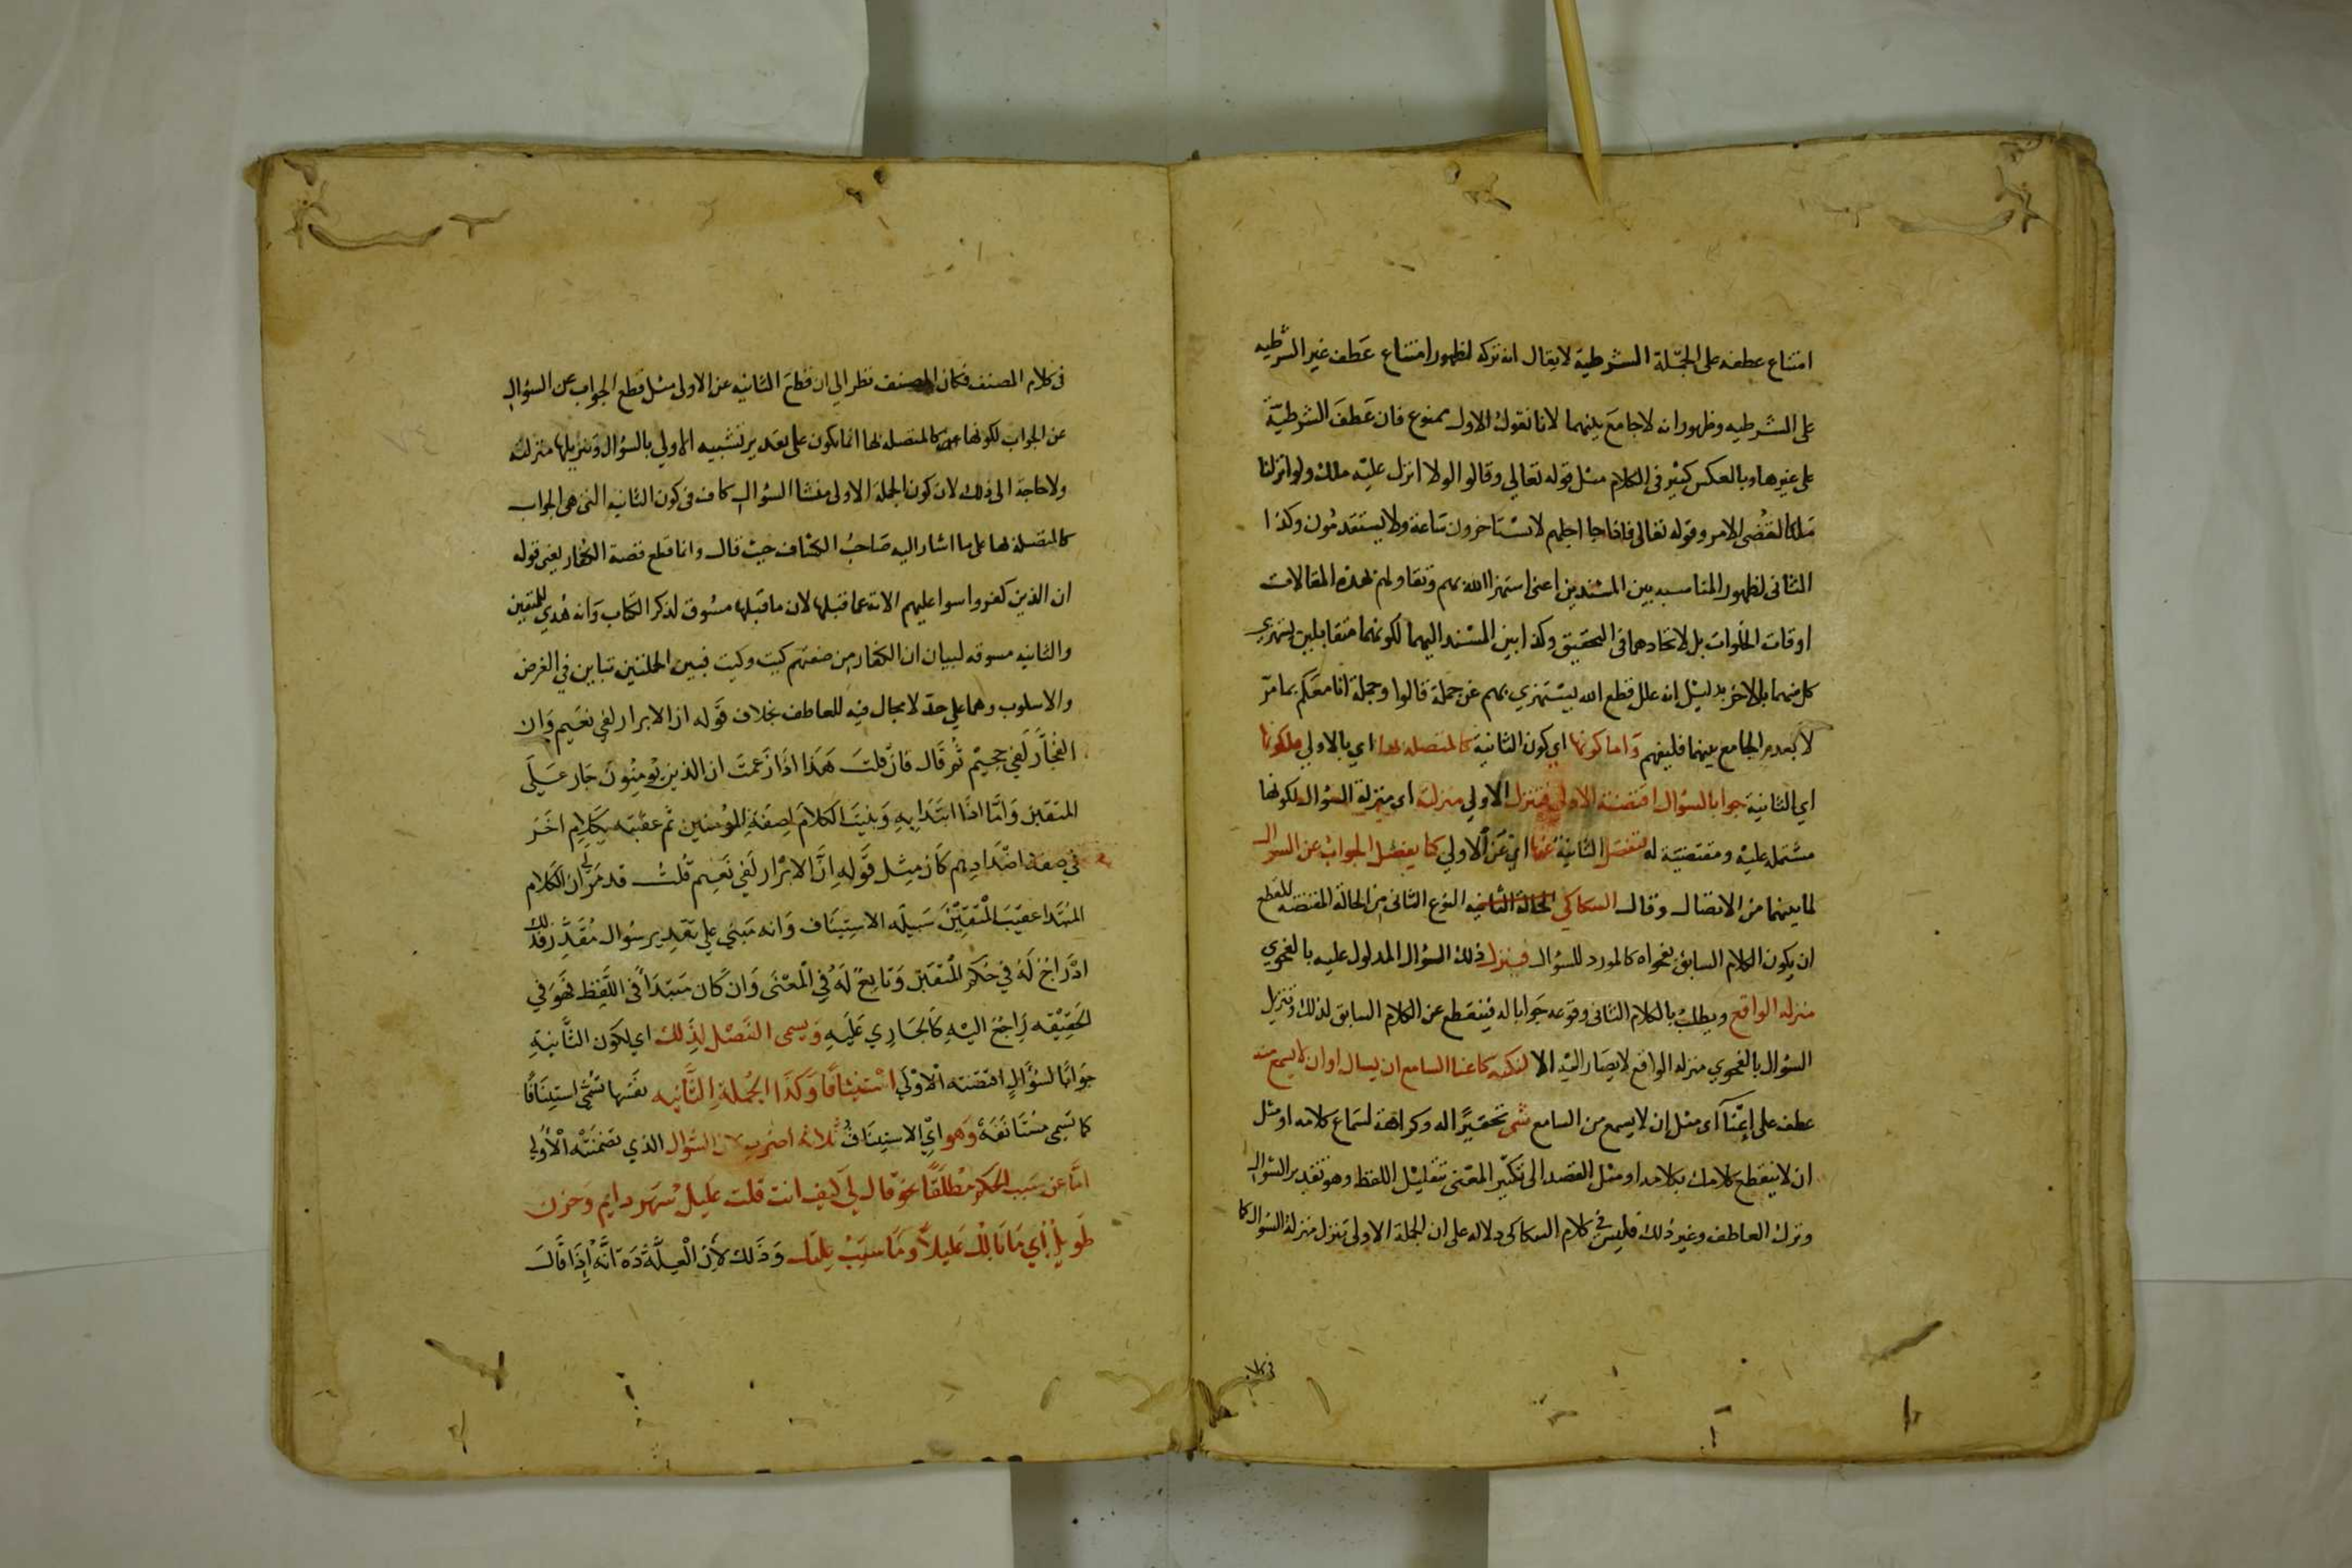 امتناع عطفه على الجملة الشرطية لا يقال انه تركه لظهور امتناع عطف غير الشرطيه
على الشرطيه وظهور انه لا جامع بينهما لانا نقول الاول ممنوع فان عَطفَ الشرطيّة
على غيرها وبالعكس كثير في الكلام مثل قوله تعالي وقالوا لولا انزل عليه ملك ولو انزلنا
ملكا لقضى الامر وقوله تعالى فاذا جا اجلهم لا يستاخرون ساعة ولا يستقدمون وكذا
الثانى لظهور المناسبه بين المسندين اعنى استهزا الله بهم وتقاولهم بهذه المقالات
اوقات الخلوات بل لاتحادهما فى التحقيق وكذا بين المسند اليهما لكونهما متقابلين يستهزي
كل منهما بالاخر بدليل انه علل قطع الله يستهزي بهم عن جملة قالوا وجملة انا معكم بما مرّ
لا بعدم الجامع بينهما فليفهم وَاما كونها اي كون الثانية كالمتصله بها اي بالاولي فلكونها
اي الثانية جوابا لسؤال اقتضته الاولى فتنزل الاولي منزلته اى منزلة السؤال لكونها
مشتمله عليه ومقتضيّة له فتفصل الثانية عنها اي عَن الاولي كما يفصل الجوابُ عن السوال
لما بينهما من الاتصال وقال السكاكي النوع الثانى من الحالة المقتضيه للقطع
ان يكون الكلام السابق بفحواه كالمورد للسؤال فينزل ذلك السؤال المدلول عليه بالفحوي
منزله الواقع ويطلبُ بالكلام الثانى وقوعه جَوابا له فيُقطع عن الكلام السابق لذلك وتنزيل
السؤال بالفحوي منزله الواقع لا يصَار اليه الا لنكته كاغنا السامع ان يسال او ان لا يسمع منه
عطف على اغنا اى مثل ان لا يسمع من السامع شى تحقيرًا له وكراهة لسَماع كلامه او مثل
ان لا ينقطع كلامك بكلامه او مثل القصد الى تكثير المعنى بتقليل اللفظ وهو تقدير السؤال
وترك العاطف وغير ذلك فليس في كلام السكاكى دلاله على ان الجملة الاولى تنزل منزلة السؤال كما
فى كلام
فى كلام المصنف فكان المصنف نظر الي ان قطع الثانيه عن الاولى مثل قطع الجواب عن السؤال
عن الجواب لكونها كالمتصله بها انما يكون على تقدير تشبيه الاولي بالسؤال وتنزيلها منزلته
ولا حاجة الى ذلك لان كون الجملة الاولى منشا السؤال كاف فى كون الثانيه التى هى الجواب
كالمتصلة بها على ما اشار اليه صَاحبُ الكشاف حيث قال وانما قطع قصة الكفار يعنى قوله
ان الذين كفروا سوا عليهم الاية عما قبلها لان ما قبلها مسُوق لذكر الكتاب وَانه هُدي للمتقين
والثانيه مسوقه لبيان ان الكفار من صفتهم كيت وكيت فبين الجملتين تباين في الغرض
والاسلوب وهما علي حدّ لا مجال فيه للعاطف بخلاف قَوله ان الابرار لفي نعَيم وَان
الفجّار لَفي جحيْم ثم قَال فانْ قلتَ هَذا اذَا زَعمتَ ان الذين يُومنُونَ جَار عَلَى
المتقين وَامَّا اذا ابتَدَا بِهِ وَبنيتَ الكلامَ لصِفَةِ المؤمنين ثم عقبته بكَلام اخَر
في صفة اضْدَادهم كَان مِثل قَولهِ انَّ الابْرار لَفي نَعيم قُلتُ قد مَرّ لي ان الكَلام
المُبتَدا عَقيبَ المُتقينَ سَبيله الاسِتِيناف وَانه مَبني علي تَقدير سُوال مُقَدّر فذلك
ادْرَاجٌ لَهُ في حُكم المُتقين وَتابعٌ لَهُ فِي المعْنى وَانْ كَان مُبتَدَأ فى اللفِظ فهوَ في
الحقِيقه رَاجعٌ اليْهِ كَالجَارِي عَلَيهِ وَيسمى الفَصْل لذَلكَ اي لكَون الثَّانِيَةِ
جَوَابًا لسُؤَالٍ اقتَضَته الاوْلَي اسْتينافًا وَكَذا الجُملةِ الثَّانيه نفسَها تُسَمَّى استِينافًا
كما تُسَمى مُستَانَفَةً وَهو ايْ الاستِينافُ ثَلاثة اضرُب لان السُّوال الذي تضَمَنَتْه الاُولي
امَّا عن سَبب الحكم مُطلقًا نحو قال لي كَيف انت قلت عَليل سَهر دايم وَحزن
طَويل اي مَا بَالُك عَليلاً وَمَا سَببْ عِلّتك وَذَلك لأنَّ الْعِلَّة انَّه اِذَا قَالَ